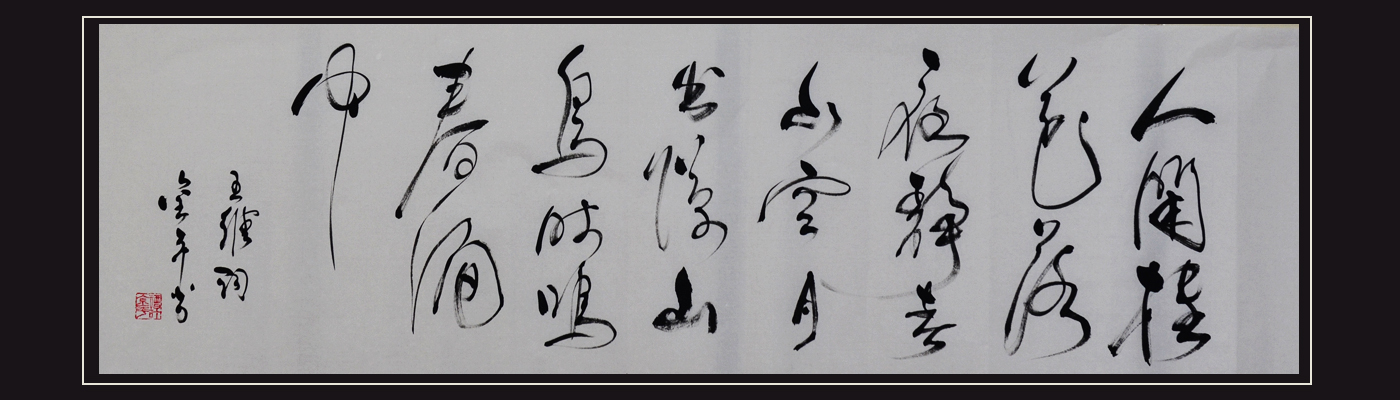 人闲桂
花落
夜静春
山空月
出惊山
鸟时鸣
春涧
中
王维词
书